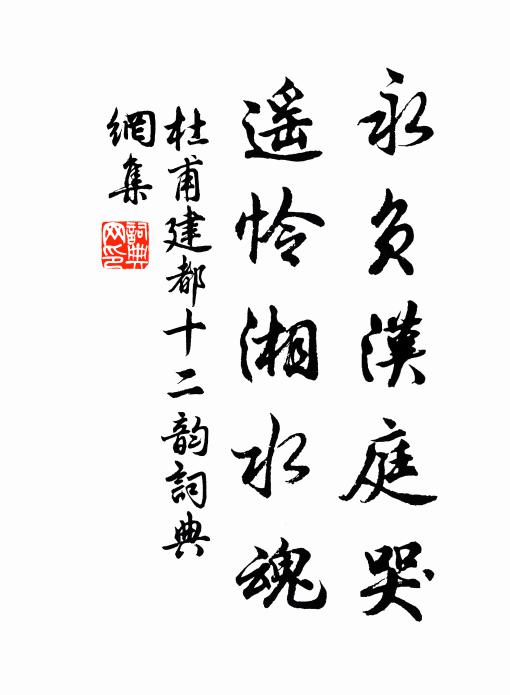 永負漢庭哭
遥怜湘水魂
杜甫建都十二韵詞典
網集
詞典
网印